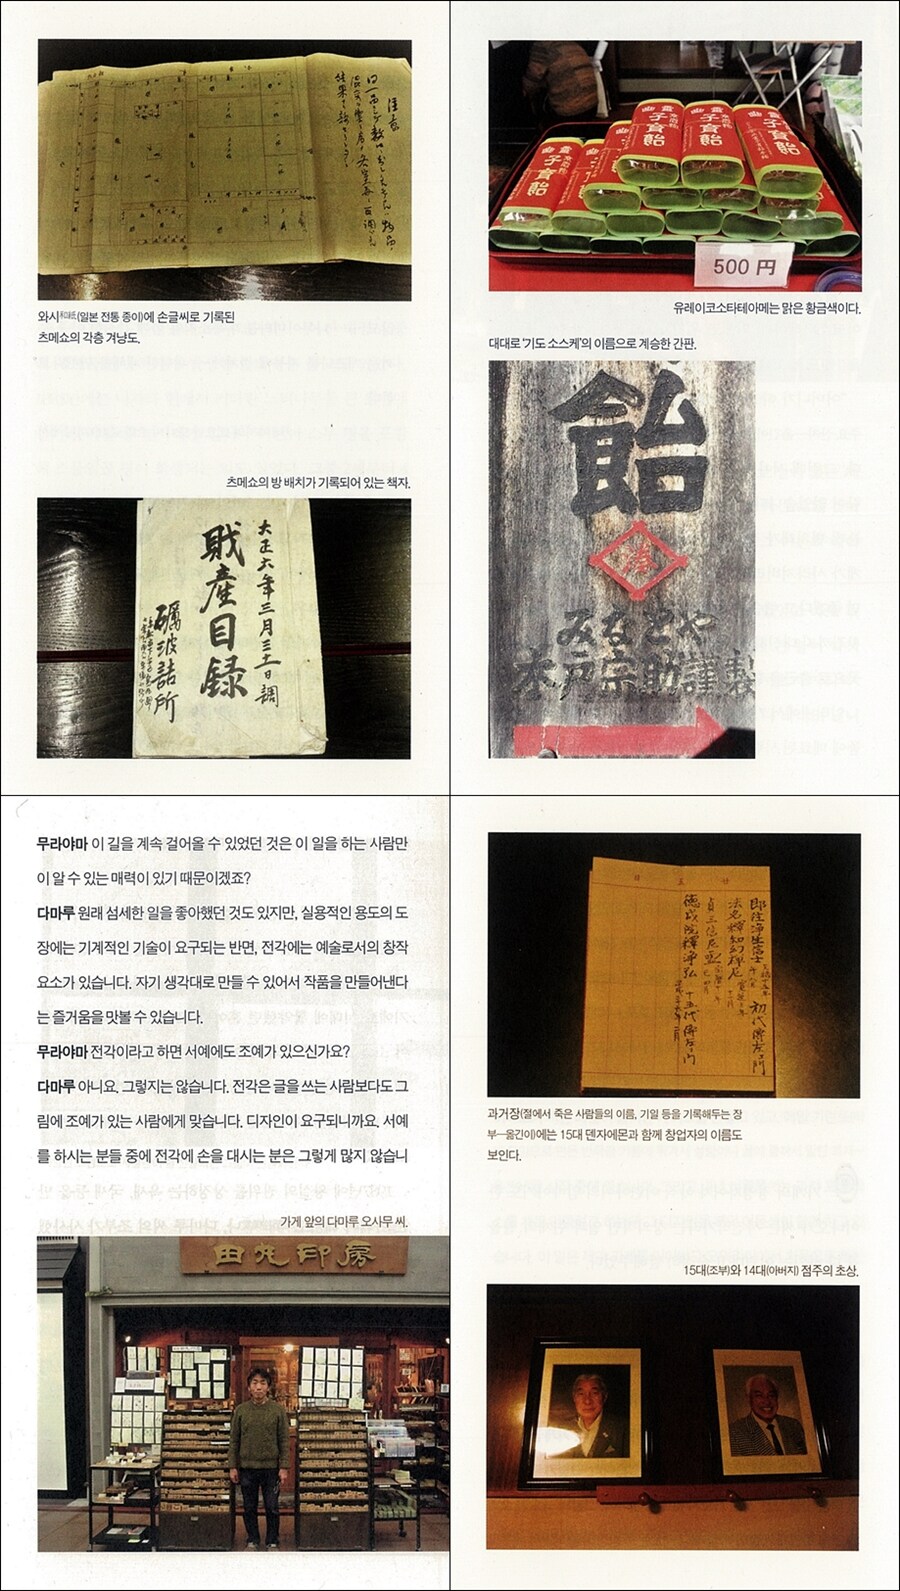 와시和紙(일본 전통 종이)에 손글씨로 기록된
츠메쇼의 각층 겨냥도.
츠메쇼의 방 배치가 기록되어 있는 책자.
大正六年三月三十一日調
財産目録
礪波詰所
幽霊子育飴
500 円
유레이코소타테아메는 맑은 황금색이다.
대대로 '기도 소스케'의 이름으로 계승한 간판.
飴
みなとや
木戸宗助謹製
무라야마 이 길을 계속 걸어올 수 있었던 것은 이 일을 하는 사람만
이 알 수 있는 매력이 있기 때문이겠죠?
다마루 원래 섬세한 일을 좋아했던 것도 있지만, 실용적인 용도의 도
장에는 기계적인 기술이 요구되는 반면, 전각에는 예술로서의 창작
요소가 있습니다. 자기 생각대로 만들 수 있어서 작품을 만들어낸다
는 즐거움을 맛볼 수 있습니다.
무라야마 전각이라고 하면 서예에도 조예가 있으신가요?
다마루 아니요, 그렇지는 않습니다. 전각은 글을 쓰는 사람보다도 그
림에 조예가 있는 사람에게 맞습니다. 디자인이 요구되니까요. 서예
를 하시는 분들 중에 전각에 손을 대시는 분은 그렇게 많지 않습니
가게 앞의 다마루 오사무 씨.
田丸印房
初代傳左ヱ門
十五代傳左ヱ門
과거장(절에서 죽은 사람들의 이름, 기일 등을 기록해두는 장
부―옮긴이)에는 15대 덴자에몬과 함께 창업자의 이름도
보인다.
15대(조부)와 14대(아버지) 점주의 초상.